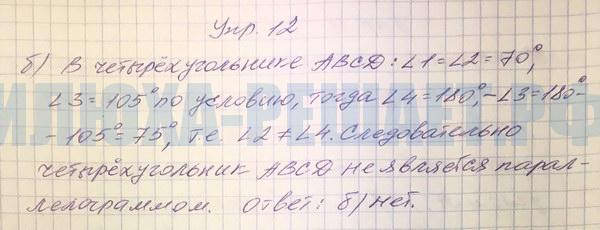 Упр. 12
б) В четырёхугольнике ABCD: ∠1=∠2=70°,
∠3=105° по условию, тогда ∠4=180°,-∠3=180°-
-105°=75°, т.е. ∠2≠∠4. Следовательно
четырёхугольник ABCD не является парал-
лелограммом. Ответ: б) нет.